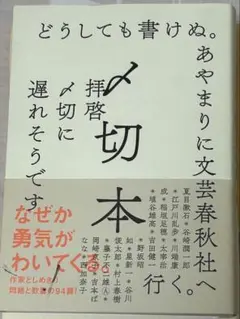 どうしても書けぬ。
あやまりに文芸春秋社へ
行く。
〆切本
拝啓
〆切に
遅れそうです
夏目漱石・谷崎潤一郎
・江戸川乱歩・川端康
成・稲垣足穂・太宰治
・埴谷雄高・吉田健一
・野坂昭
如・星新一・谷川
俊太郎・村上春樹
・藤子不二雄Ⓐ・
岡崎京子・吉本ば
なな・西加奈子
なぜか
勇気が
わいてくる。